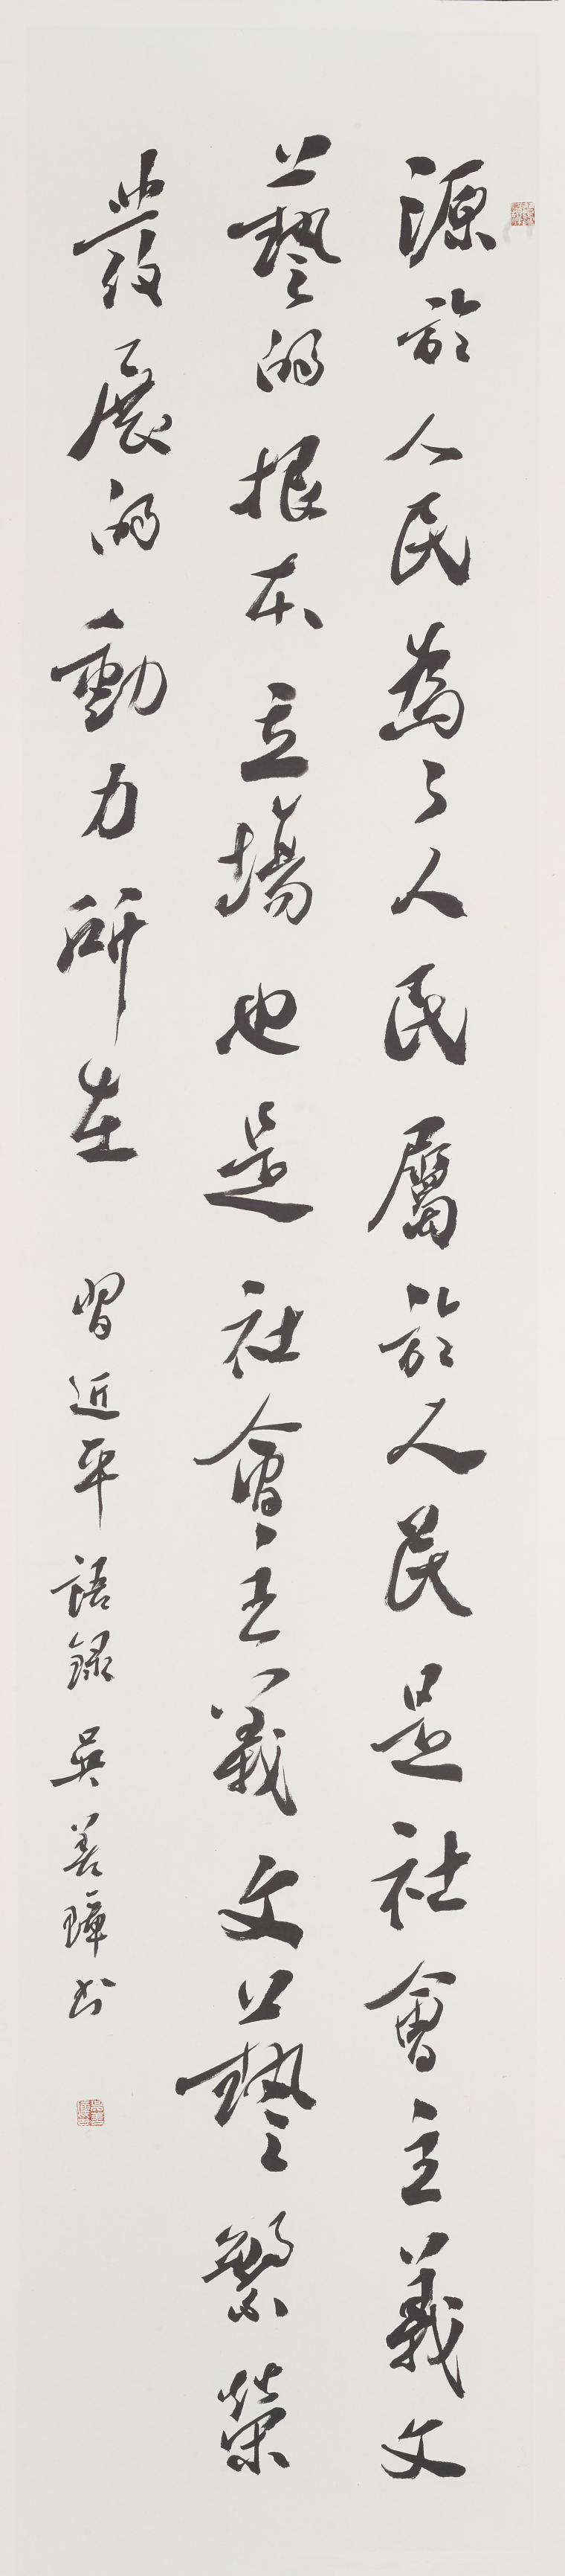 源於人民為了人民屬於人民是社會主義文
藝的根本立場也是社會主義文藝繁榮
發展的動力所在
習近平語錄 吳善璋書